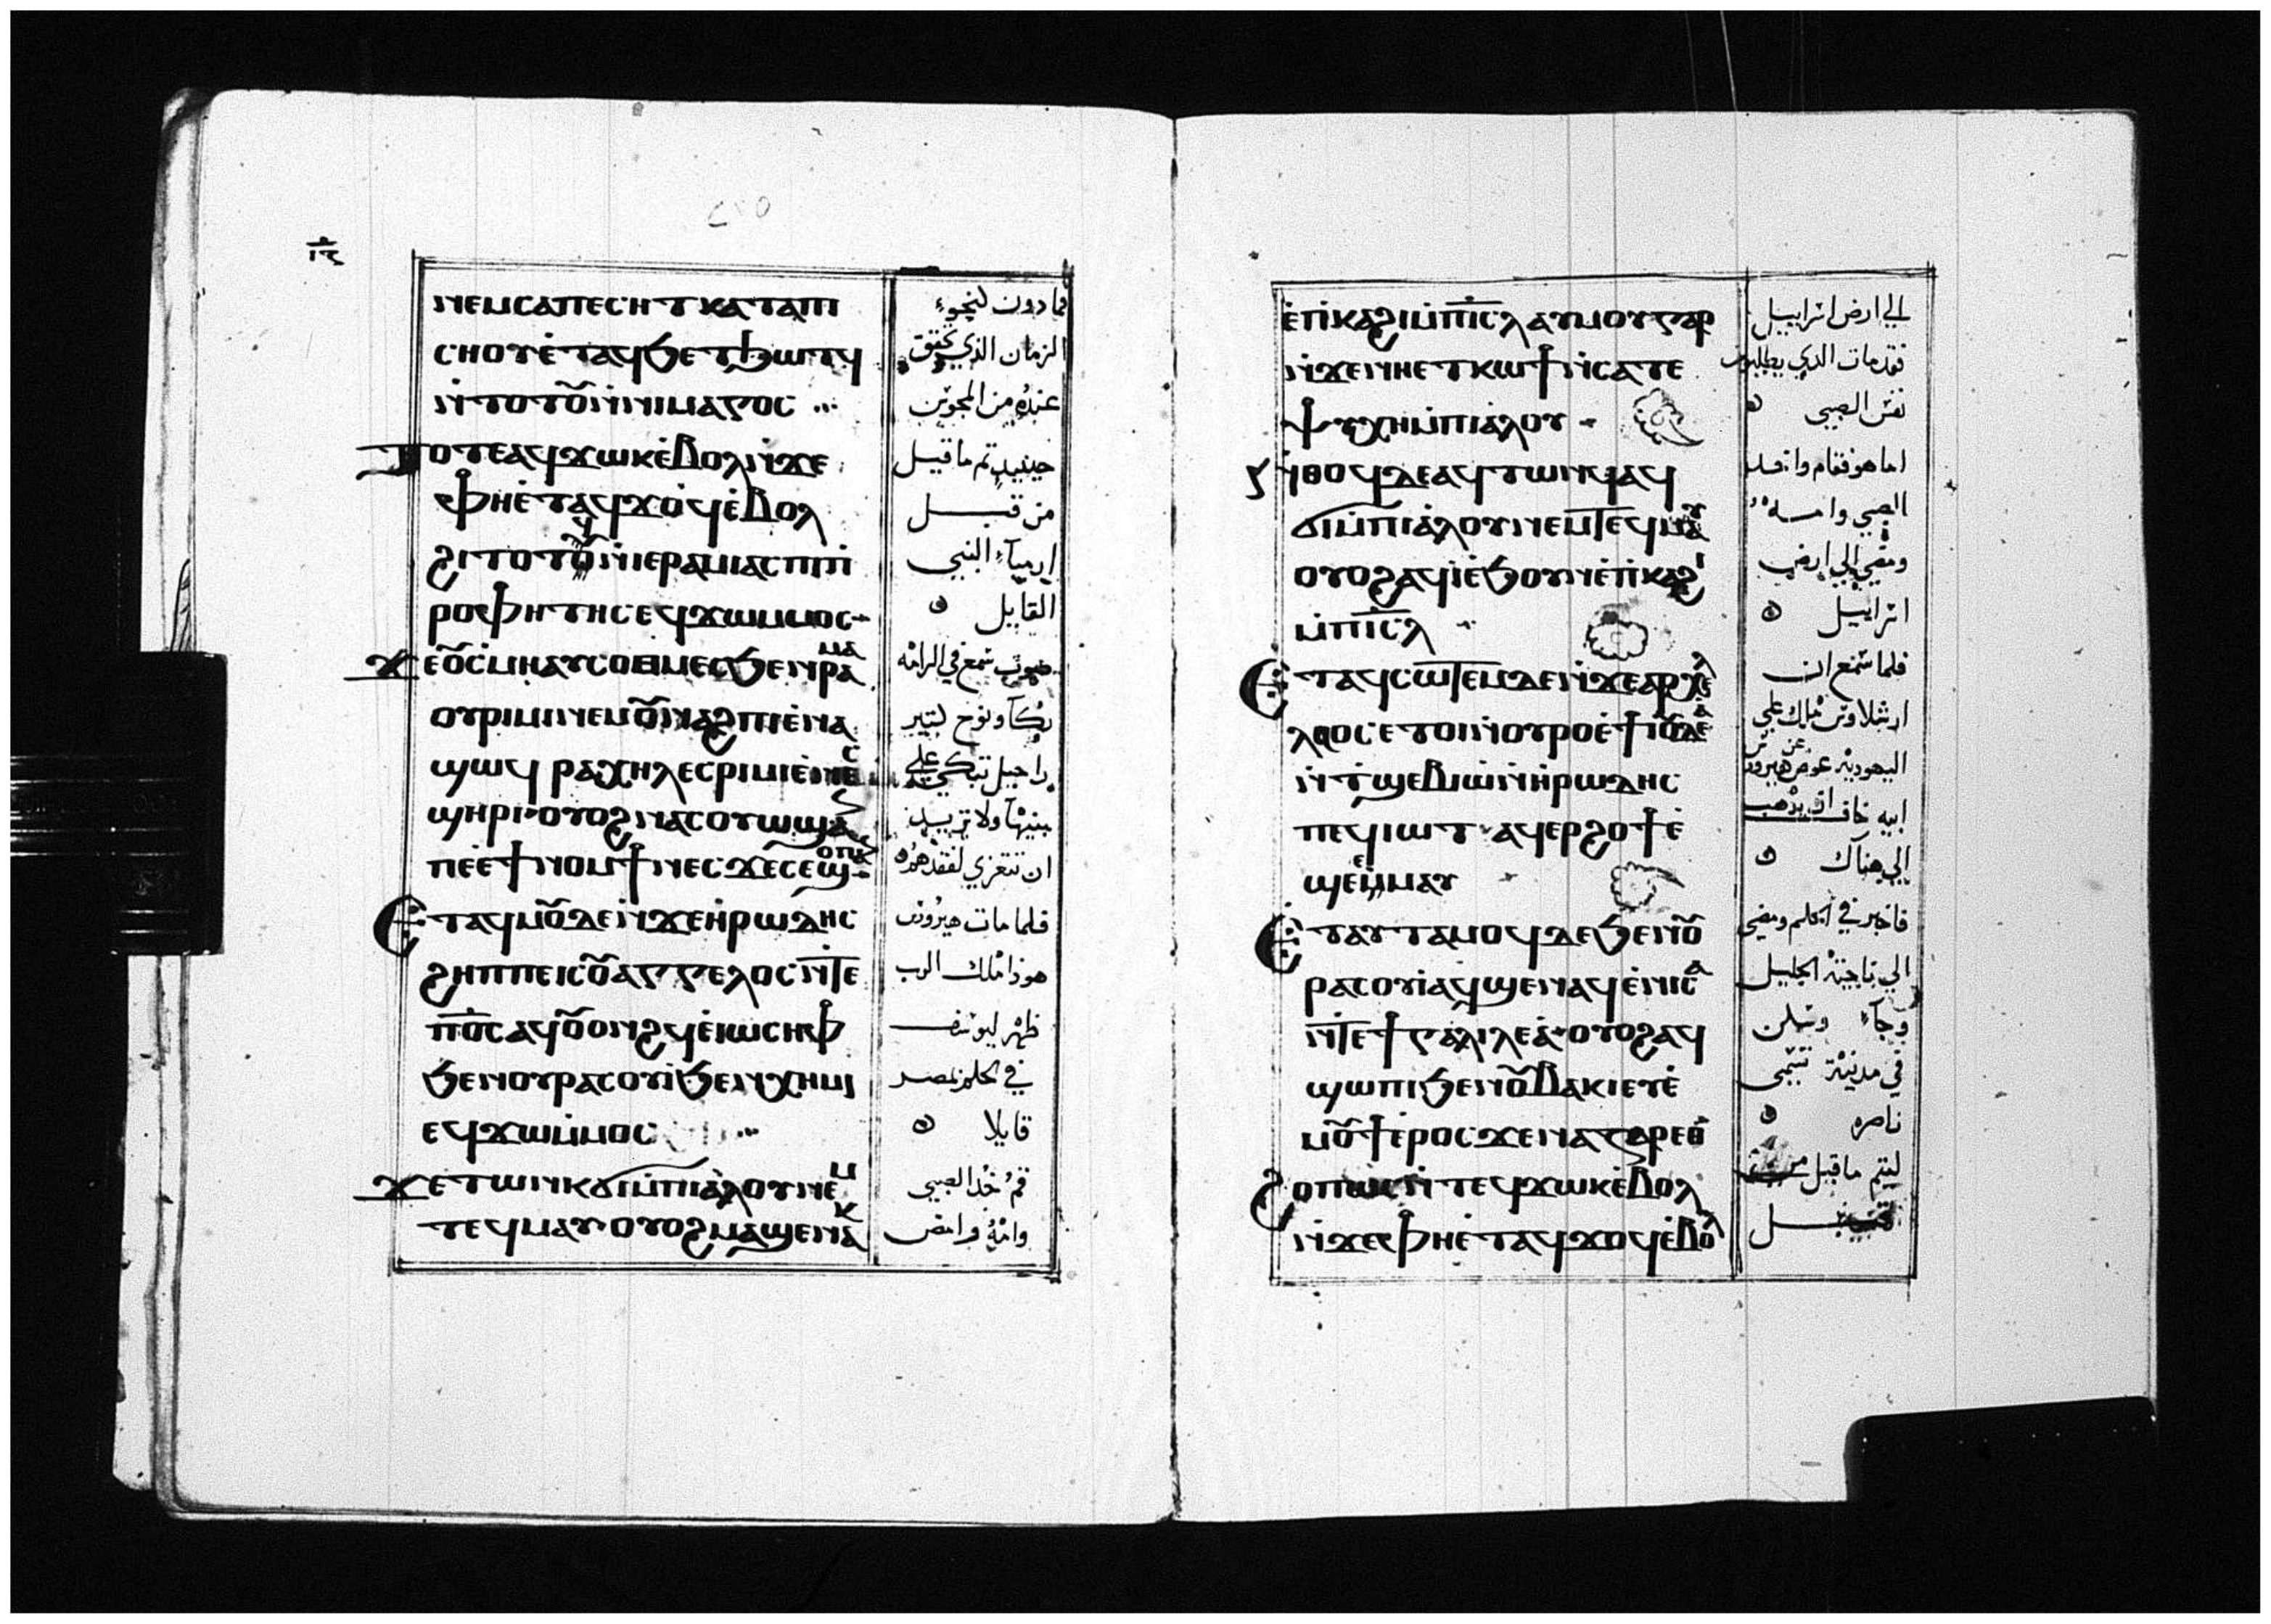 ⲛⲉⲙⲥⲁⲡⲉⲥⲏⲧ ⲕⲁⲧⲁⲡⲓ
ⲥⲏⲟⲩⲉ̀ⲧⲁϥϧⲉⲧϧⲱⲧϥ
ⲛ̀ⲧⲟⲧⲟ̅ⲩ̅ⲛ̀ⲛⲓⲙⲁⲅⲟⲥ
ⲧⲟⲧⲉⲁϥϫⲱⲕⲉ̀ⲃⲟⲗⲛ̀ϫⲉ
ⲫⲏⲉ̀ⲧⲁϥϫⲟϥⲉ̀ⲃⲟⲗ
ϩⲓⲧⲟⲧϥⲛ̀ⲓⲉⲣⲁⲙⲓⲁⲥ ⲡⲓⲡ̀
ⲣⲟⲫⲏⲧⲏⲥ ⲉϥϫⲱⲙ̀ⲙⲟⲥ
ϫⲉⲟ̅ⲩ̅ⲥ̀ⲙⲏⲁⲩⲥⲟⲑⲙⲉⲥϧⲉⲛⲣⲁⲙⲁ
ⲟⲩⲣⲓⲙⲓⲛⲉⲙⲟ̅ⲩ̅ⲛⲁϩⲡⲓⲉ̀ⲛⲁ
ϣⲱϥ ⲣⲁⲭⲏⲗⲉⲥⲣⲓⲙⲓⲉ̀ⲛⲉⲥ
ϣⲏⲣⲓ ⲟⲩⲟϩⲛⲁⲥⲟⲩⲱϣⲁⲛ
ⲡⲉⲉ̀ϯⲛⲟⲙϯⲛⲉⲥϫⲉⲥⲉϣⲟⲡⲁⲛ
ⲉⲧⲁϥⲙⲟ̅ⲩ̅ⲇⲉⲛ̀ϫⲉⲏ̀ⲣⲱⲇⲏⲥ
ϩⲏⲡⲡⲉⲓⲥⲟ̅ⲩ̅ⲁⲅⲅⲉⲗⲟⲥⲛ̀ⲧⲉ
ⲡ̅ⲟ̅ⲥ̅ⲁϥⲟ̅ⲩ̅ⲟⲛϩϥⲉ̀ⲓⲱⲥⲏⲫ
ϧⲉⲛⲟⲩⲣⲁⲥⲟⲩⲓ̀ϧⲉⲛⲭⲏⲙⲓ
ⲉϥϫⲱⲙ̀ⲙⲟⲥ
ϫⲉⲧⲱⲛⲕϭⲓⲙ̀ⲡⲓⲁ̀ⲗⲟⲩⲛⲉⲙ
ⲧⲉϥⲙⲁⲩ ⲟⲩⲟϩⲙⲁϣⲉⲛⲁⲕ
فما دون لنحوء
الزمان الذي تحقق
عنده من المجوس
حينيد تم ما قيل
من قبل
ارمياء النبي
القايل
صوت سمع في الرامه
بكآ ونوح كتير
راحيل تبكي علي
بنيها ولا تريد
ان تتعزي لفقدهم
فلما مات هيرودس
هوذا ملاك الرب
ظهر ليوسف
في الحلم بمصر
قايلا
قم خد الصبي
وامه وامض
ⲉ̀ⲡ̀ⲕⲁϩⲓⲙ̀ⲡⲓ̅ⲥ̅ⲗ̅ ⲁⲩⲙⲟⲩⲅⲁⲣ
ⲛ̀ϫⲉⲛⲏⲉⲧⲕⲱϯⲛ̀ⲥⲁⲧⲉ
ⲯⲩⲭⲏⲙ̀ⲡⲓⲁ̀ⲗⲟⲩ
ⲛ̀ⲑⲟϥⲇⲉⲁϥⲧⲱⲛϥⲁϥ
ϭⲓⲙ̀ⲡⲓⲁ̀ⲗⲟⲩⲛⲉⲙⲧⲉϥⲙⲁⲩ
ⲟⲩⲟϩⲁϥⲓ̀ⲉ̀ϧⲟⲩⲛⲉ̀ⲡ̀ⲕⲁϩⲓ
ⲙ̀ⲡⲓ̅ⲥ̅ⲗ̅
ⲉⲧⲁϥⲥⲱⲧⲉⲙⲇⲉⲛ̀ϫⲉⲁⲣⲭⲉ
ⲗⲁⲟⲥ ⲉⲧⲟⲓⲛ̀ⲟⲩⲣⲟⲉ̀ϯⲓⲟ̅ⲩ̅ⲇⲉⲁ̀
ⲛ̀ⲧ̀ϣⲉⲃⲓⲱ̀ⲛ̀ⲏ̀ⲣⲱⲇⲏⲥ
ⲡⲉϥⲓⲱⲧ ⲁϥⲉⲣϩⲟϯⲉ̀
ϣⲉⲉ̀ⲙⲙⲁⲩ
ⲉⲧⲁⲩⲧⲁⲙⲟϥⲇⲉϧⲉⲛⲟ̅ⲩ̅
ⲣⲁⲥⲟⲩⲓ̀ⲁϥϣⲉⲛⲁϥⲉ̀ⲛⲓⲥⲁ
ⲛ̀ⲧⲉϯⲅⲁⲗⲓⲗⲉⲁ̀ ⲟⲩⲟϩⲁϥ
ϣⲱⲡⲓϧⲉⲛⲟ̅ⲩ̅ⲃⲁⲕⲓⲉⲩⲉ̀
ⲙⲟ̅ⲩ̅ϯⲉ̀ⲣⲟⲥϫⲉⲛⲁⲍⲁⲣⲉⲑ
ϩⲟⲡⲱⲥ ⲛ̀ⲧⲉϥϫⲱⲕⲉ̀ⲃⲟⲗ
ⲛ̀ϫⲉⲫⲏⲉ̀ⲧⲁϥϫⲟϥⲉ̀ⲃⲟⲗ
الي ارض اسراييل
فقد مات الدي يطلبون
نفس الصبي
اما هو فقام واخد
الصبي وامه
ومضي الي ارض
اسراييل
فلما سمع ان
ارشلاوس ملك علي
اليهوديه عوض عن هيرودس
ابيه خاف ان يذهب
الي هناك
فاخبر في الحلم ومضي
الي ناحية الجليل
وجآء وسكن
في مدينة تسمي
ناصره
ليتم ما قيل من